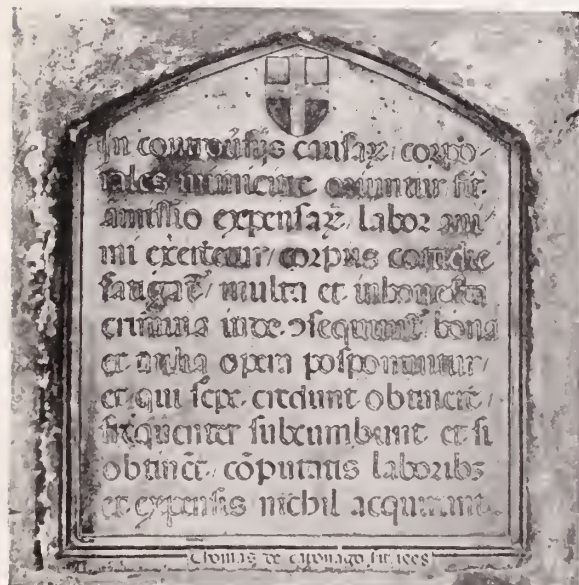 In controũsijs causaꝝ / corpo/
rales inimicitie oriuntur fit
amissio expensaꝝ / labor ani
mi exercetur / corpus cotidie
fatigat᷑ / multa et inhonesta
crimina inde ↄsequunt᷑ bona
et utilia opera posponuntur /
et qui sepe credunt obtinere /
frequenter subcumbunt et si
obtinẽt / cõputatis laboribꝫ
et expensis nichil acquirunt
Thomas de caponago